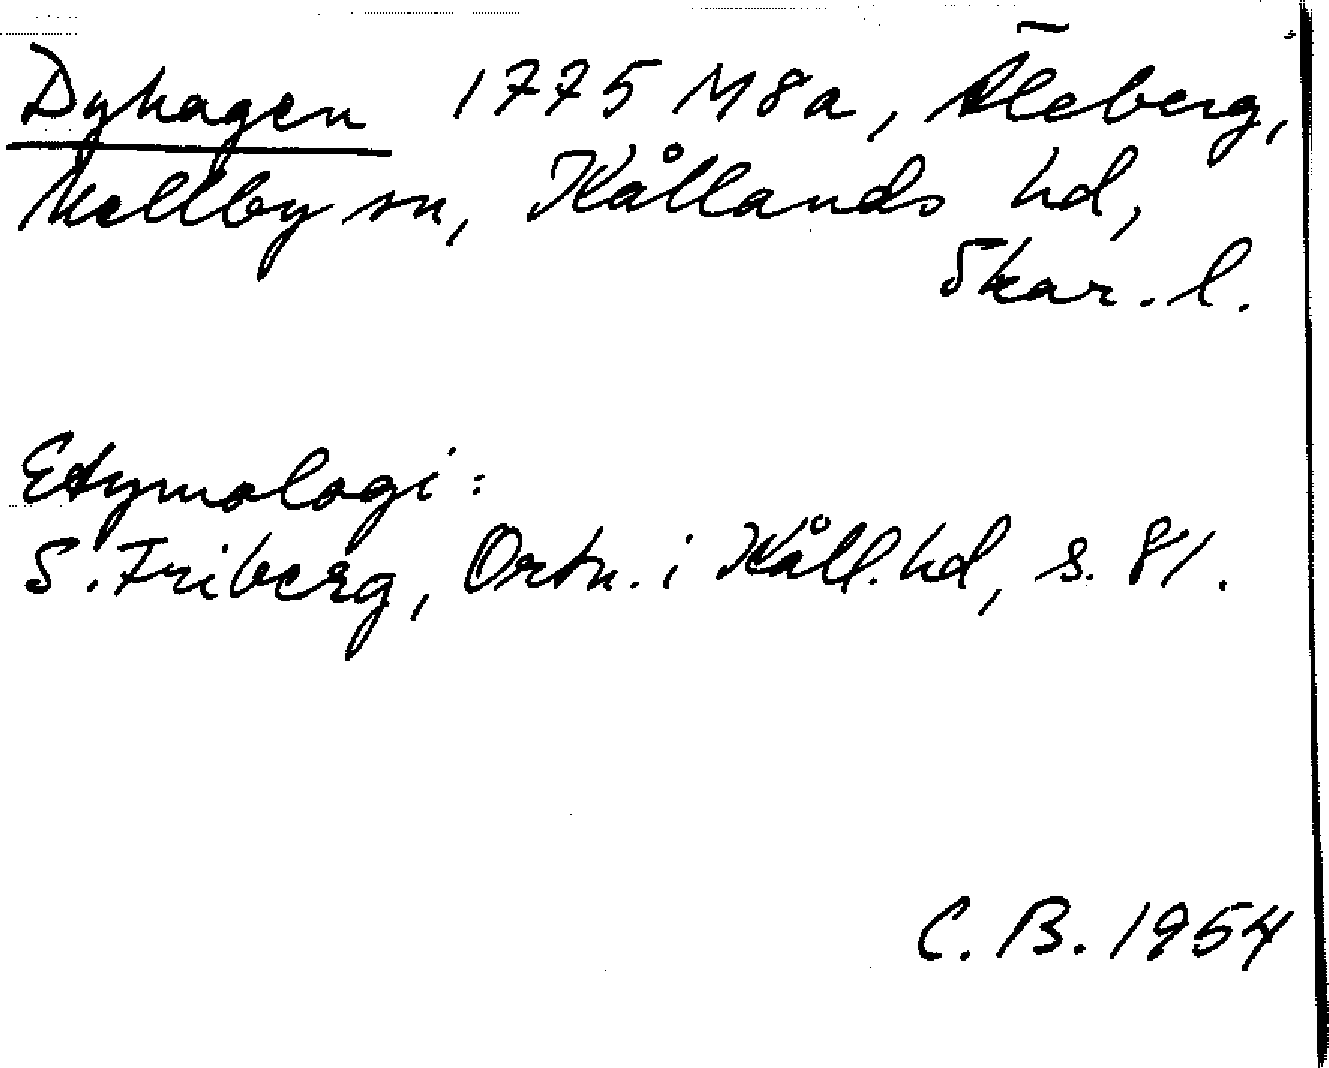 Dyhagen 1775 M8a, Äleberg,
Mellby sn, Kållands hd,
Skar. l.
Etymologi:
S. Friberg, Ortn. i Kåll. hd, s. 81.
C. B. 1954